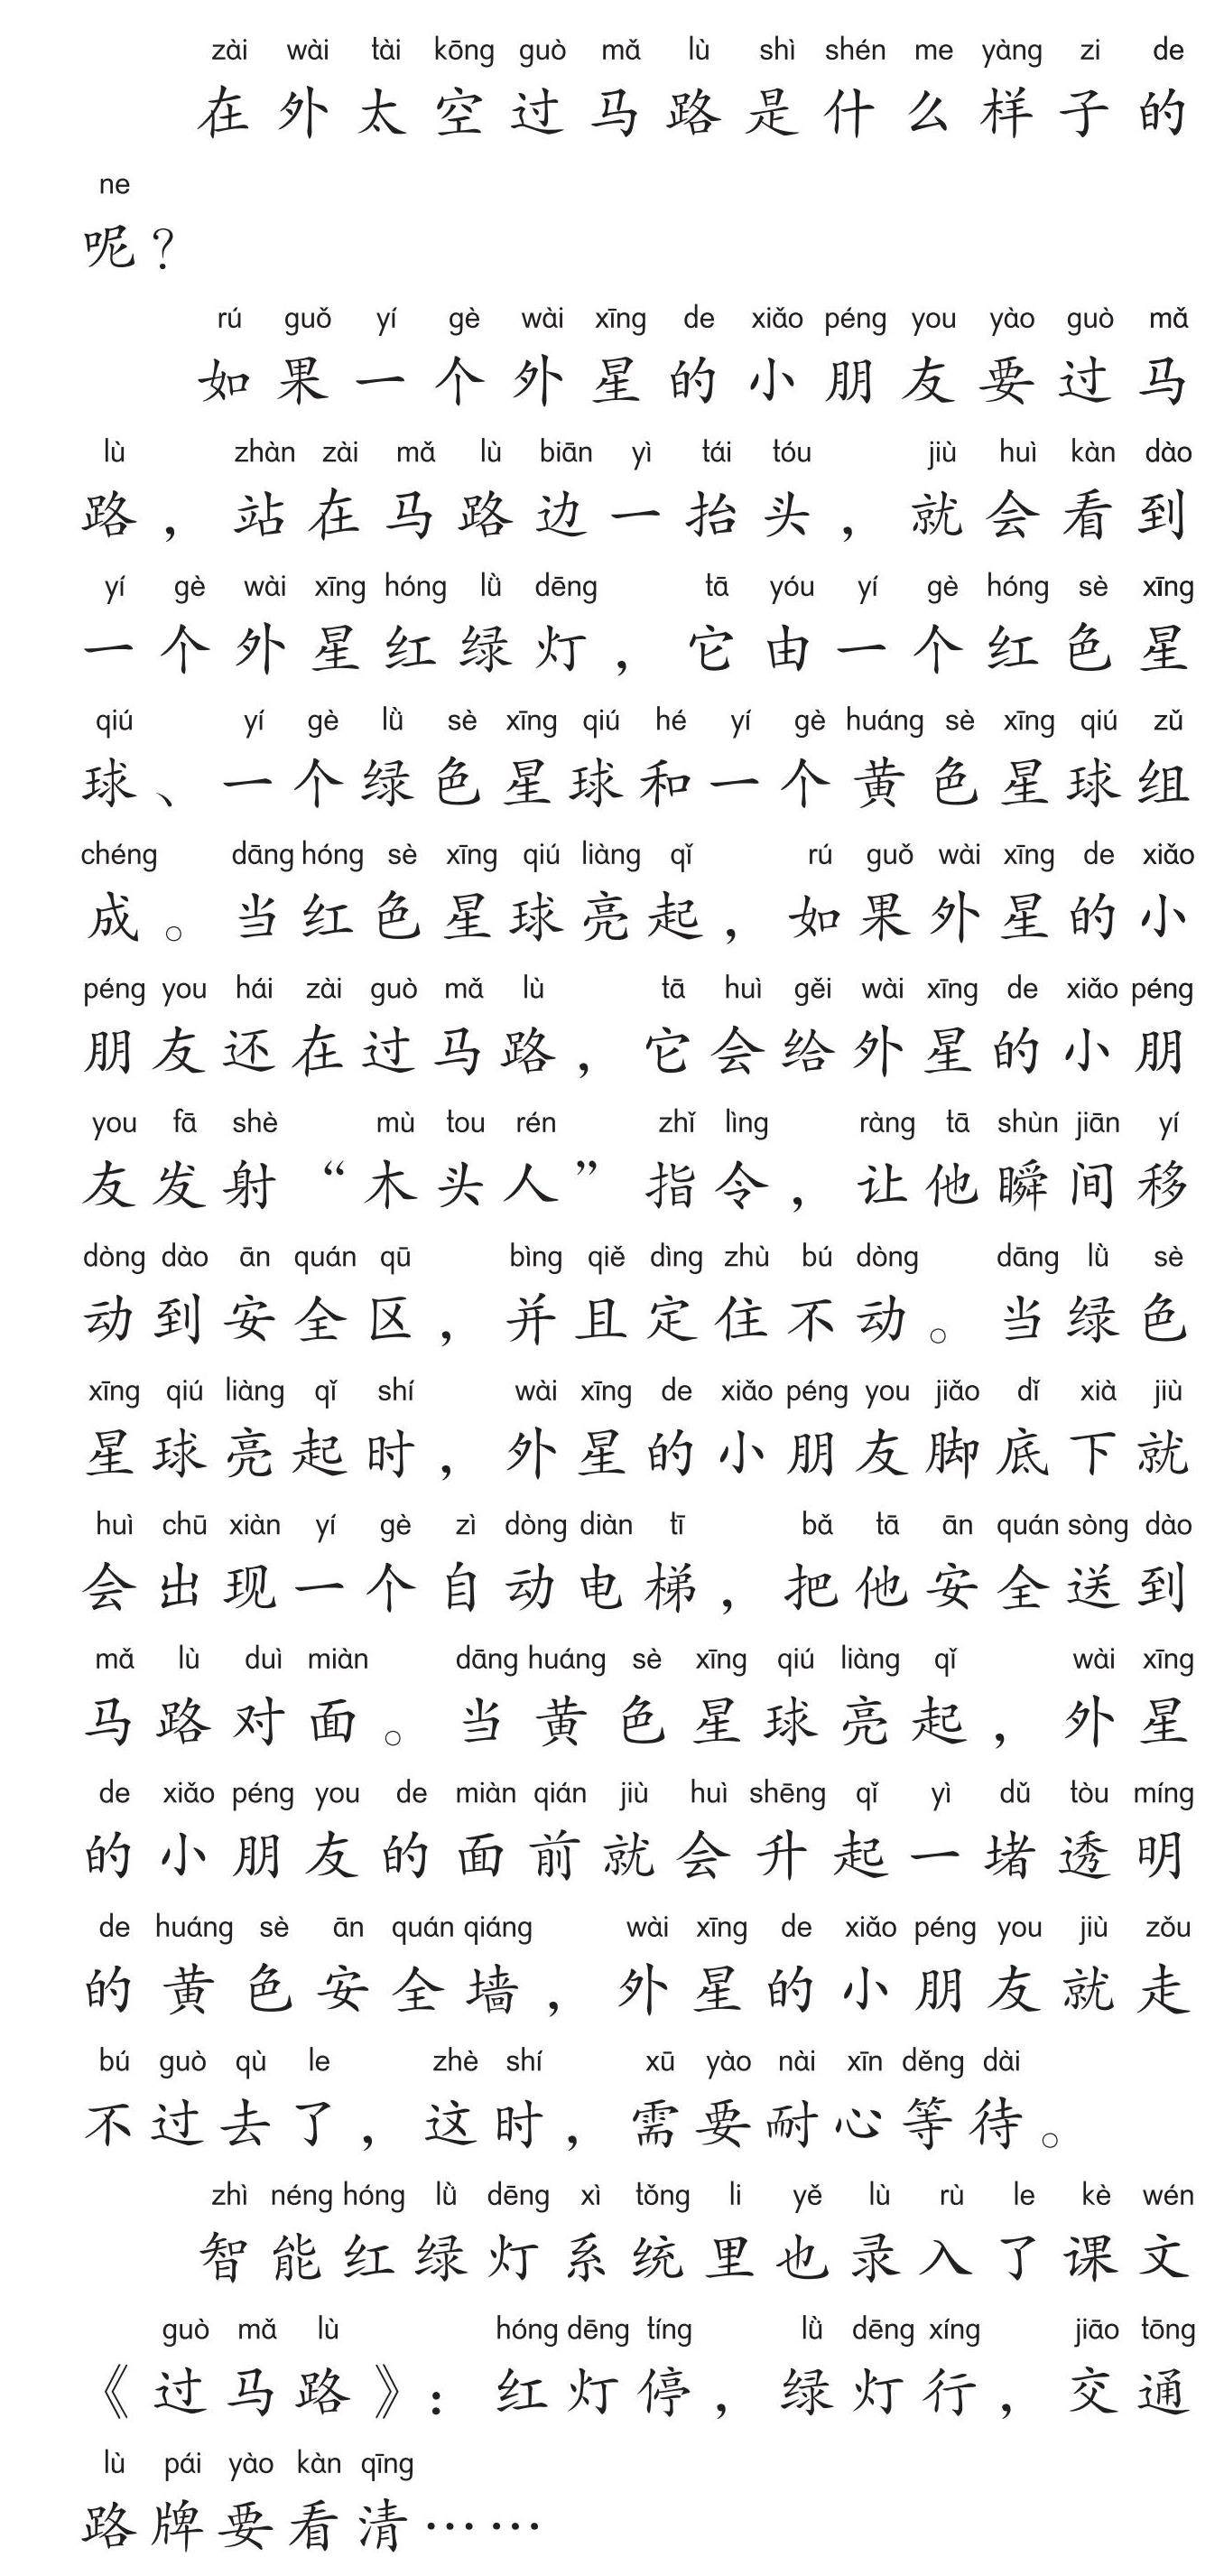 zài wài tài kōng guò mǎ lù shì shén me yàng zi de
在外太空过马路是什么样子的
ne
呢？
rú guǒ yí gè wài xīng de xiǎo péng you yào guò mǎ
如果一个外星的小朋友要过马
lù zhàn zài mǎ lù biān yì tái tóu jiù huì kàn dào
路，站在马路边一抬头，就会看到
yí gè wài xīng hóng lǜ dēng tā yóu yí gè hóng sè xīng
一个外星红绿灯，它由一个红色星
qiú yí gè lǜ sè xīng qiú hé yí gè huáng sè xīng qiú zǔ
球、一个绿色星球和一个黄色星球组
chéng dāng hóng sè xīng qiú liàng qǐ rú guǒ wài xīng de xiǎo
成。当红色星球亮起，如果外星的小
péng you hái zài guò mǎ lù tā huì gěi wài xīng de xiǎo péng
朋友还在过马路，它会给外星的小朋
you fā shè mù tou rén zhǐ lìng ràng tā shùn jiān yí
友发射“木头人”指令，让他瞬间移
dòng dào ān quán qū bìng qiě dìng zhù bú dòng dāng lǜ sè
动到安全区，并且定住不动。当绿色
xīng qiú liàng qǐ shí wài xīng de xiǎo péng you jiǎo dǐ xià jiù
星球亮起时，外星的小朋友脚底下就
huì chū xiàn yí gè zì dòng diàn tī bǎ tā ān quán sòng dào
会出现一个自动电梯，把他安全送到
mǎ lù duì miàn dāng huáng sè xīng qiú liàng qǐ wài xīng
马路对面。当黄色星球亮起，外星
de xiǎo péng you de miàn qián jiù huì shēng qǐ yì dǔ tòu míng
的小朋友的面前就会升起一堵透明
de huáng sè ān quán qiáng wài xīng de xiǎo péng you jiù zǒu
的黄色安全墙，外星的小朋友就走
bú guò qù le zhè shí xū yào nài xīn děng dài
不过去了，这时，需要耐心等待。
zhì néng hóng lǜ dēng xì tǒng li yě lù rù le kè wén
智能红绿灯系统里也录入了课文
guò mǎ lù hóng dēng tíng lǜ dēng xíng jiāo tōng
《过马路》：红灯停，绿灯行，交通
lù pái yào kàn qīng
路牌要看清……